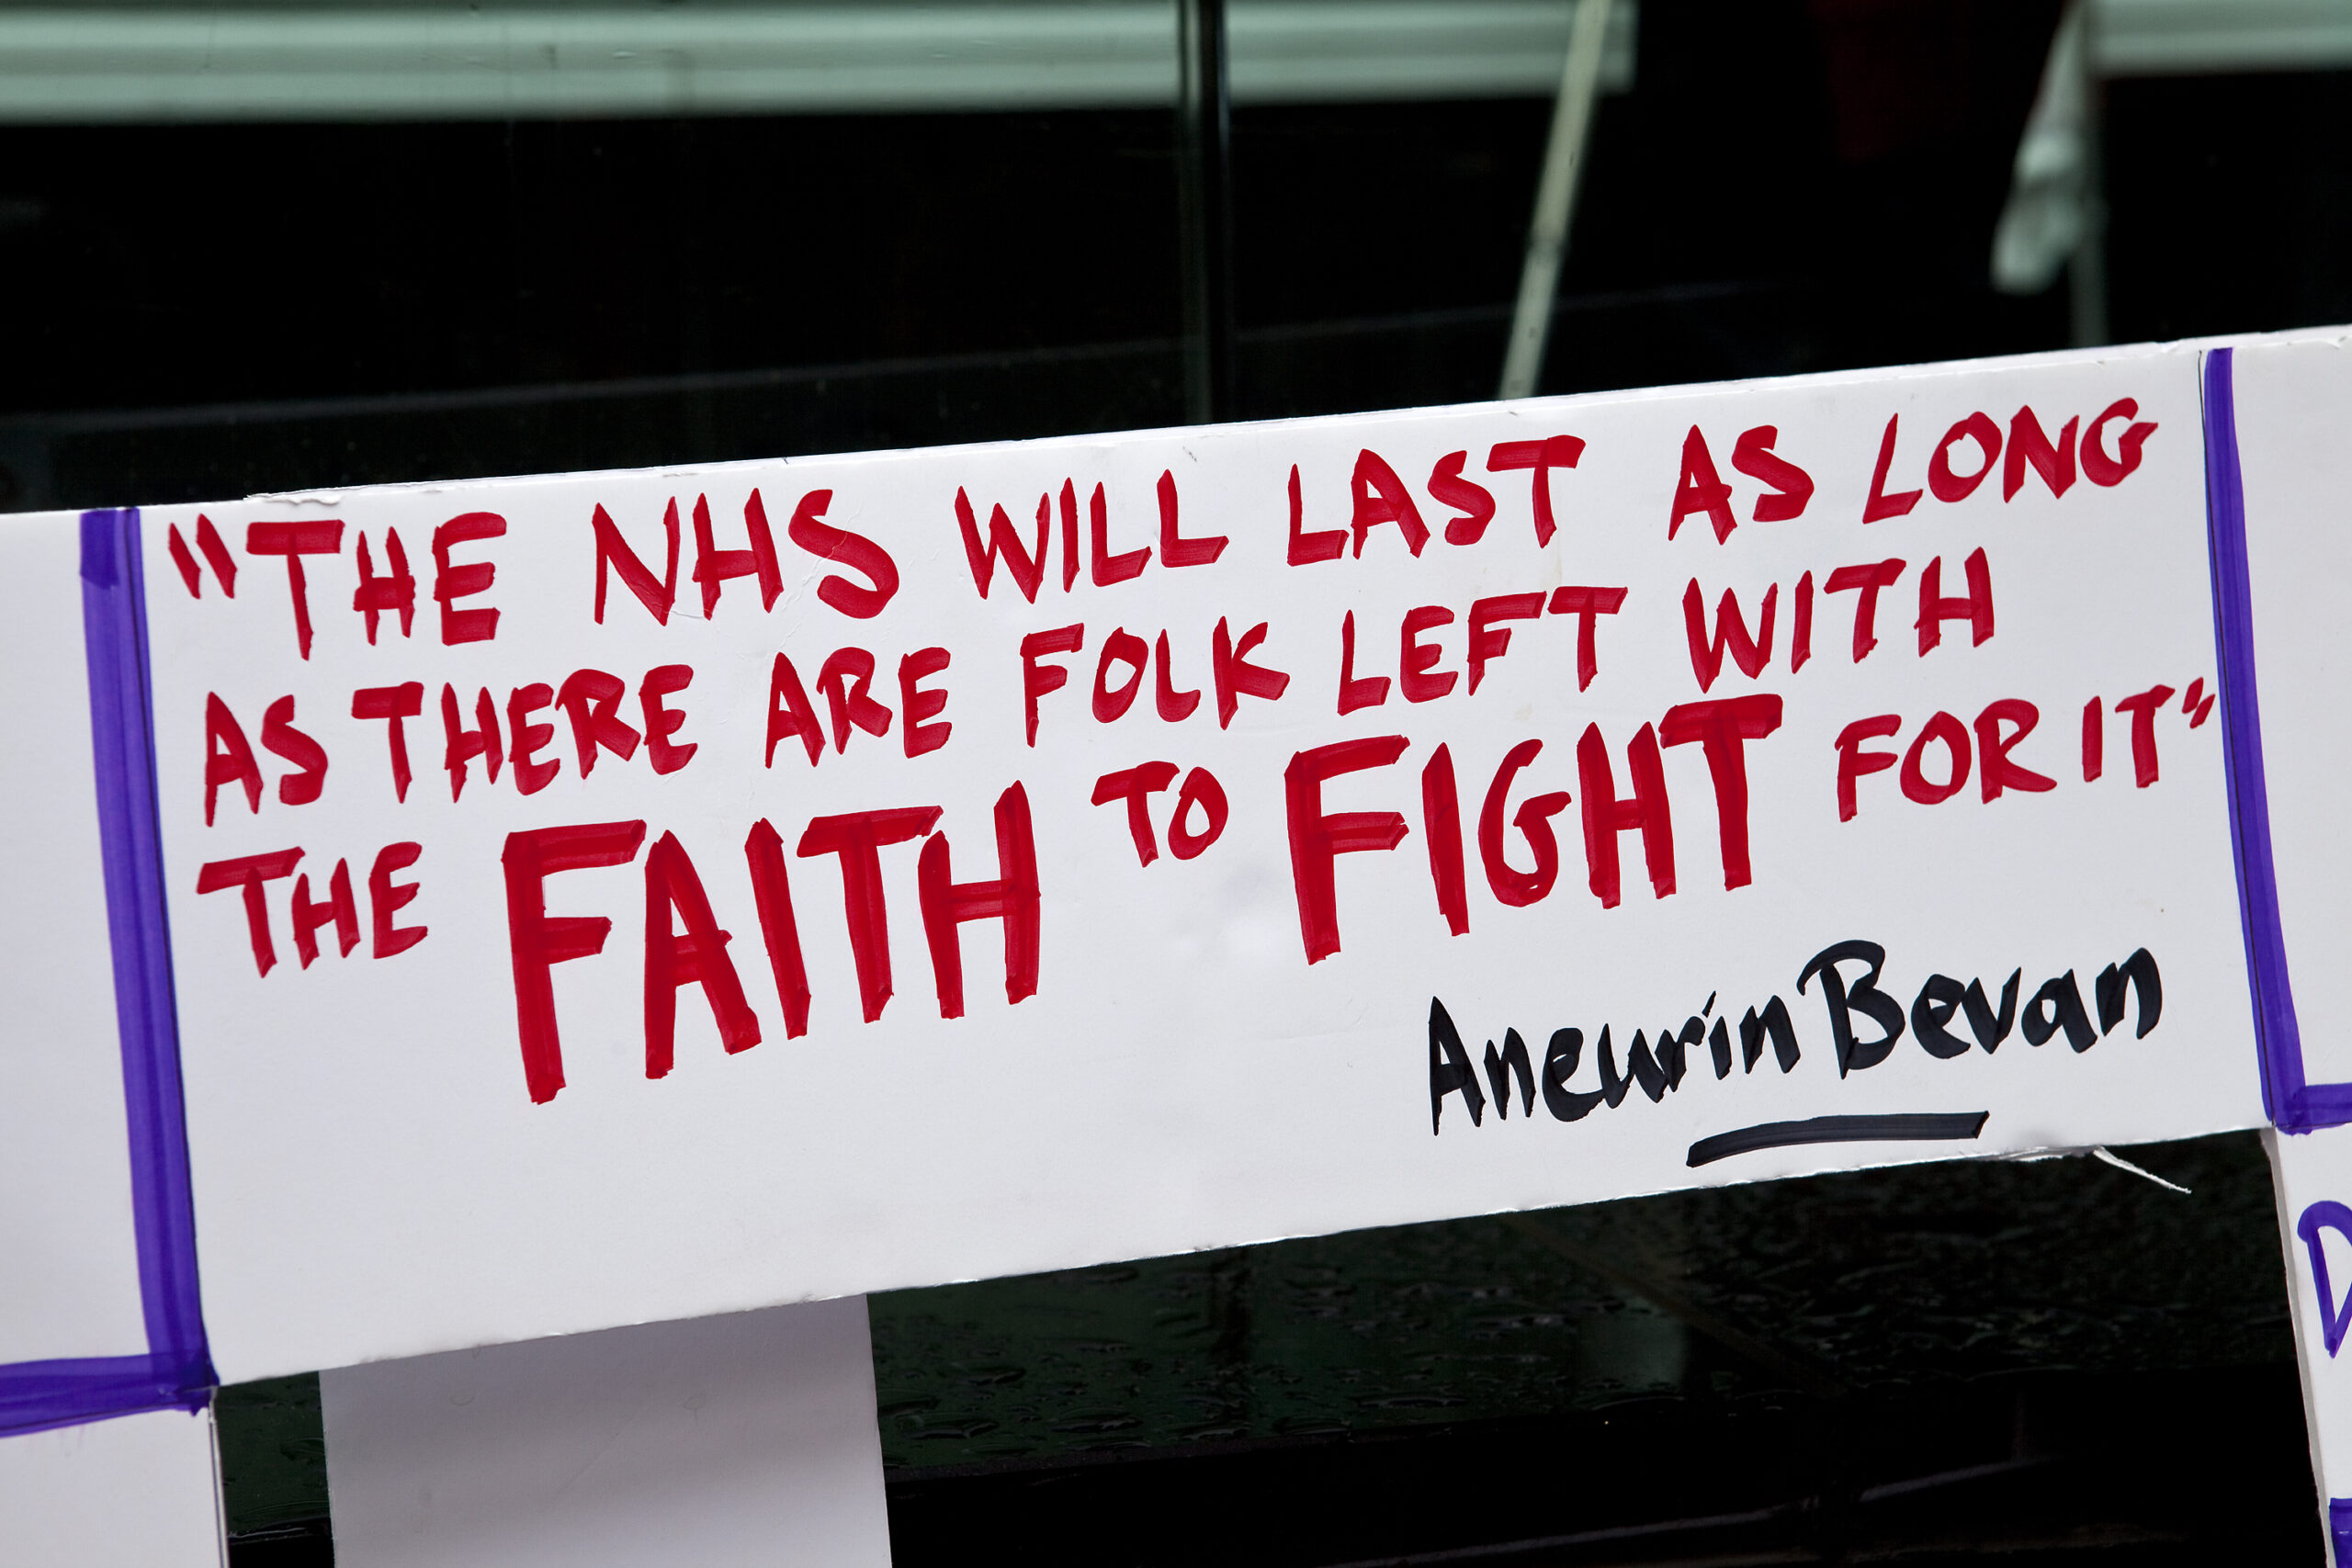 "THE NHS WILL LAST AS LONG
AS THERE ARE FOLK LEFT WITH
THE FAITH TO FIGHT FOR IT"
Aneurin Bevan